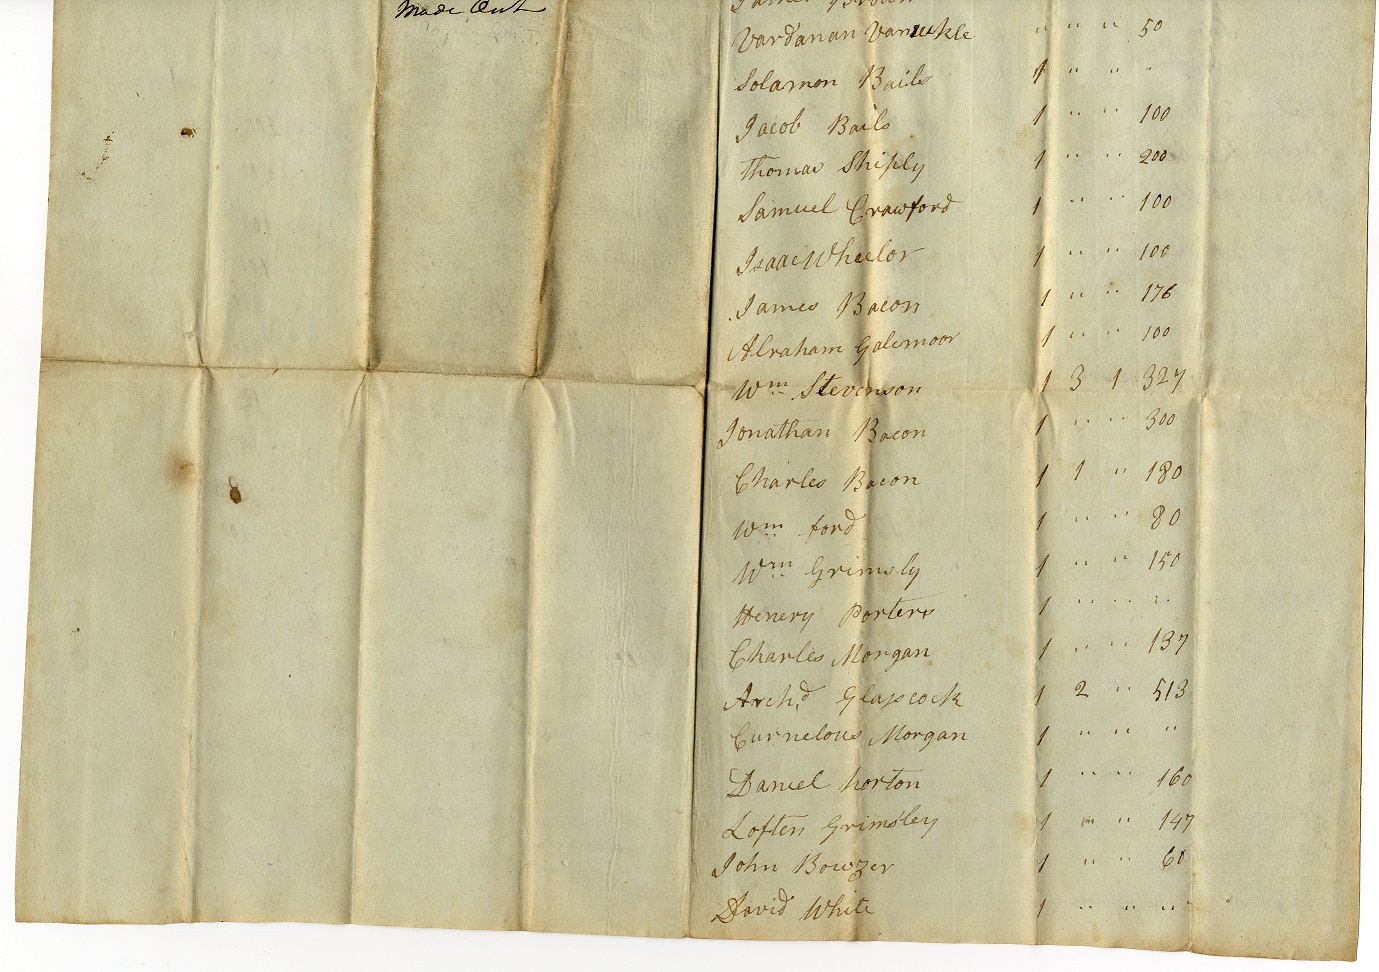 Made Out
James Brown
Vardanan Vanuckle " " " 50
Solamon Bails 1 " " "
Jacob Bails 1 " " 100
Thomas Shiply 1 " " 200
Samuel Crawford 1 " " 100
Isaac Wheelor 1 " " 100
James Bacon 1 " " 176
Abraham Galemoor 1 " " 100
Wm Stevenson 1 3 1 327
Jonathan Bacon 1 " " 300
Charles Bacon 1 1 " 180
Wm ford 1 " " 80
Wm Grimsly 1 " " 150
Henery Porters 1 " " "
Charles Morgan 1 " " 137
Archd Glasscock 1 2 " 513
Curnelous Morgan 1 " " "
Daniel horton 1 " " 160
Loften Grimsley 1 " " 147
John Bowzer 1 " " 60
David White 1 " " "